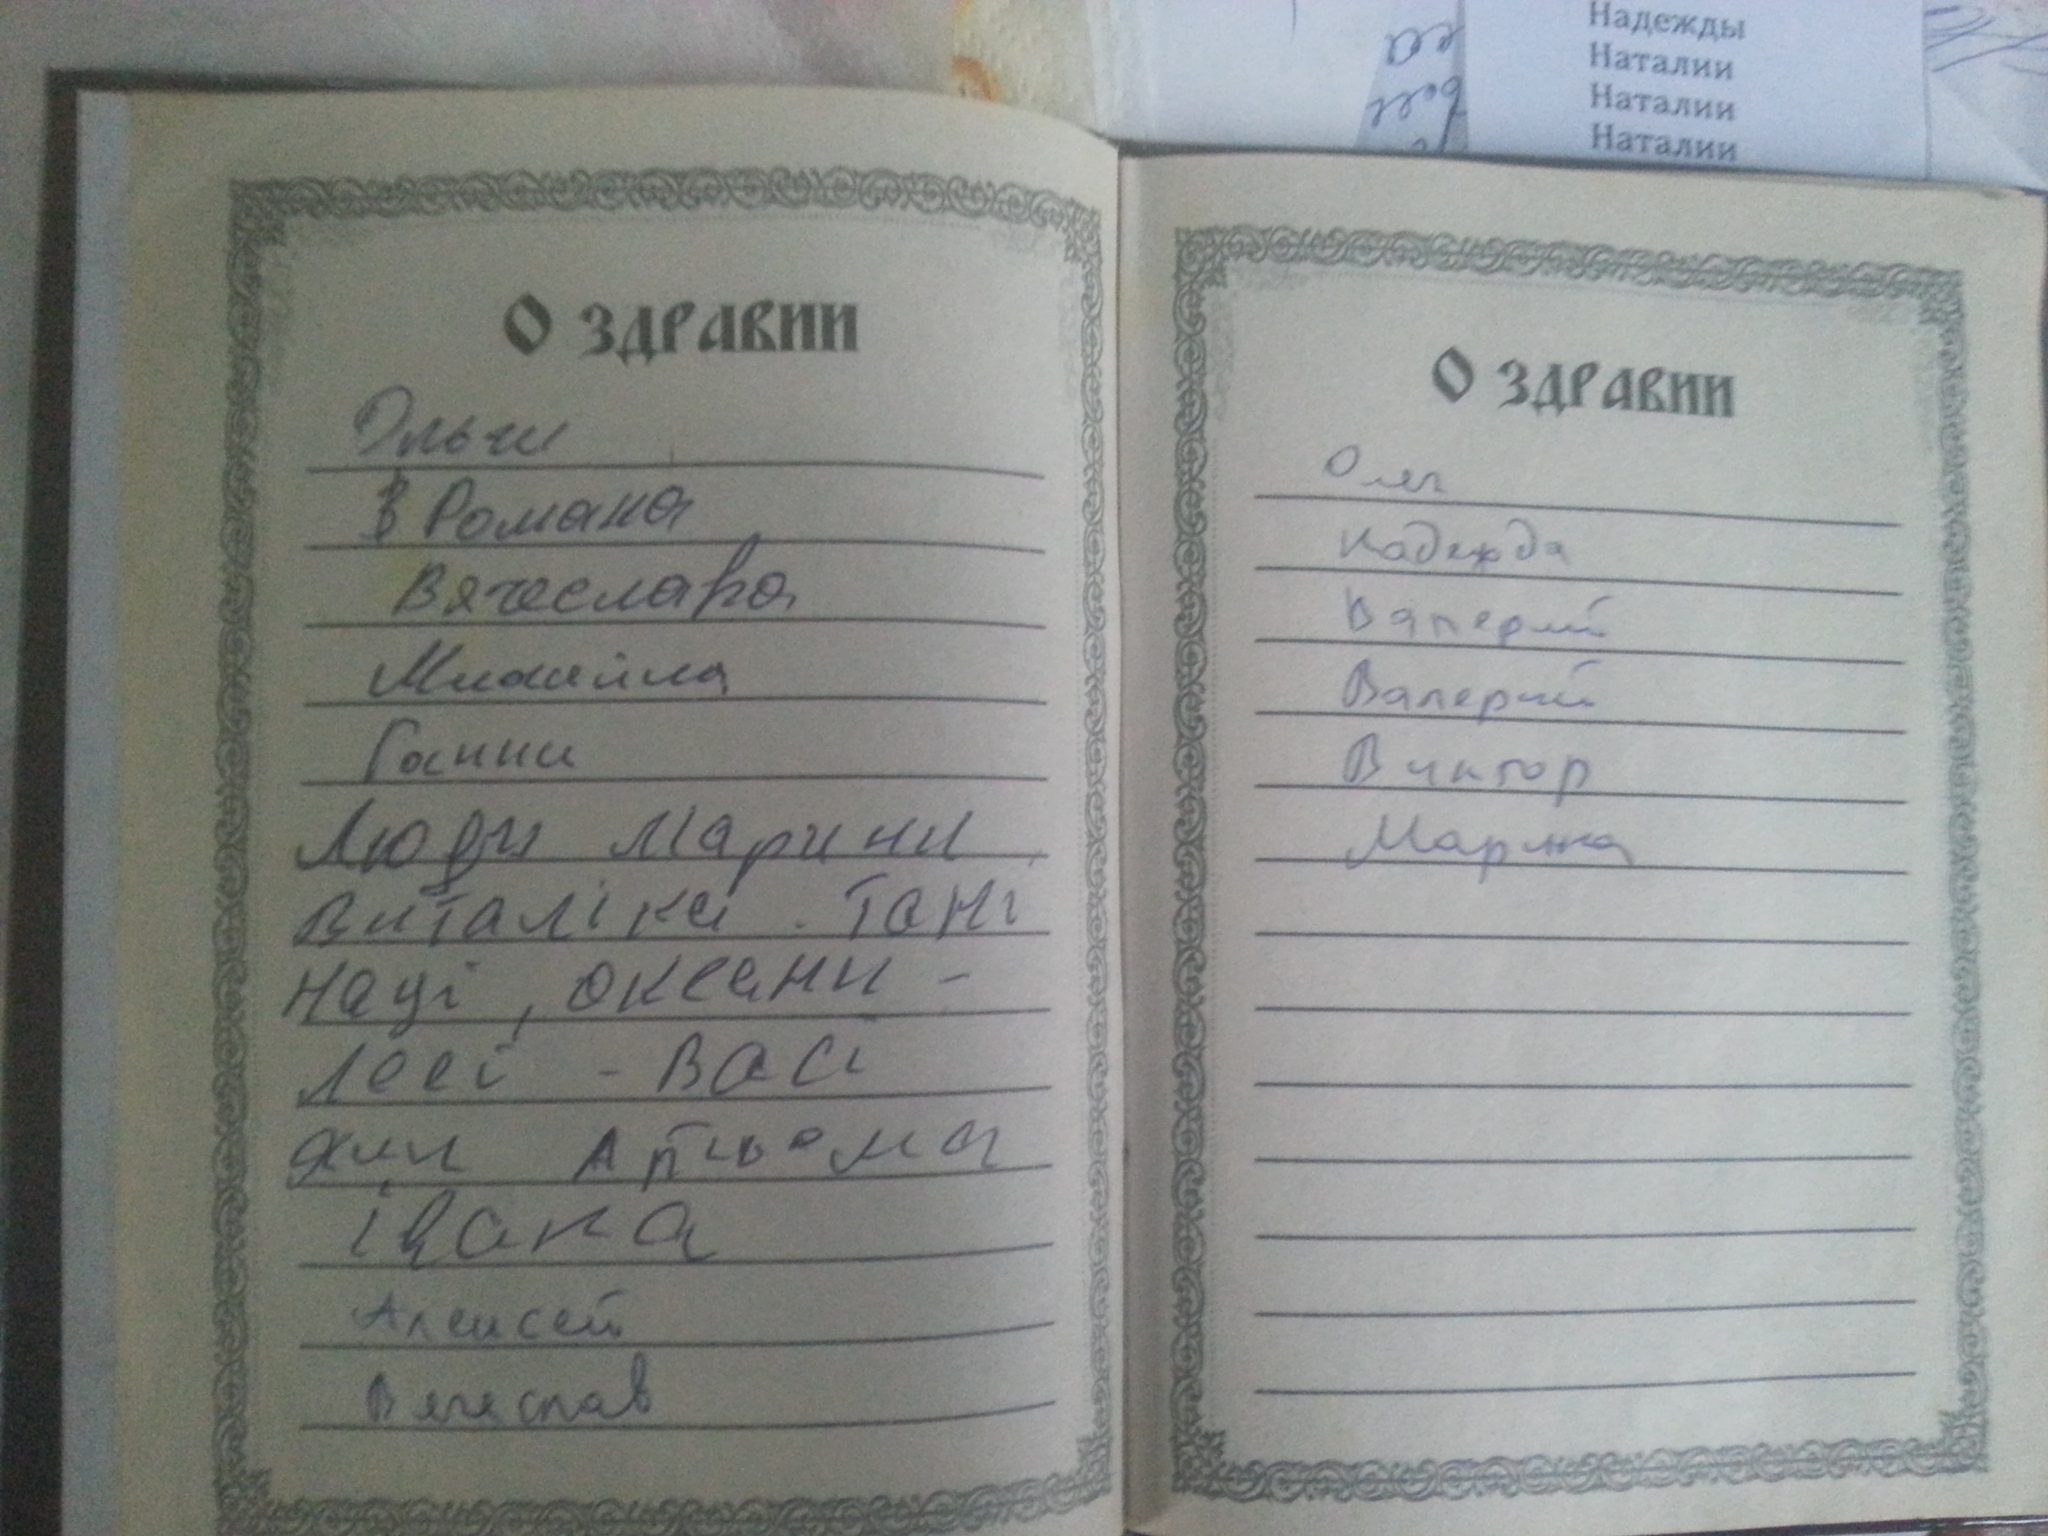 Надежды
Наталии
Наталии
Наталии
О ЗДРАВИИ
Ольги
В Романа
Вячеслава
Михайла
Ганни
Люди Марини
Виталіка . Тані
Наді , оксани -
лесі - Васі
Артьома
івана
Алексей
Вячеслав
О ЗДРАВИИ
Олег
Надежда
Валерий
Валерий
Виктор
Марина